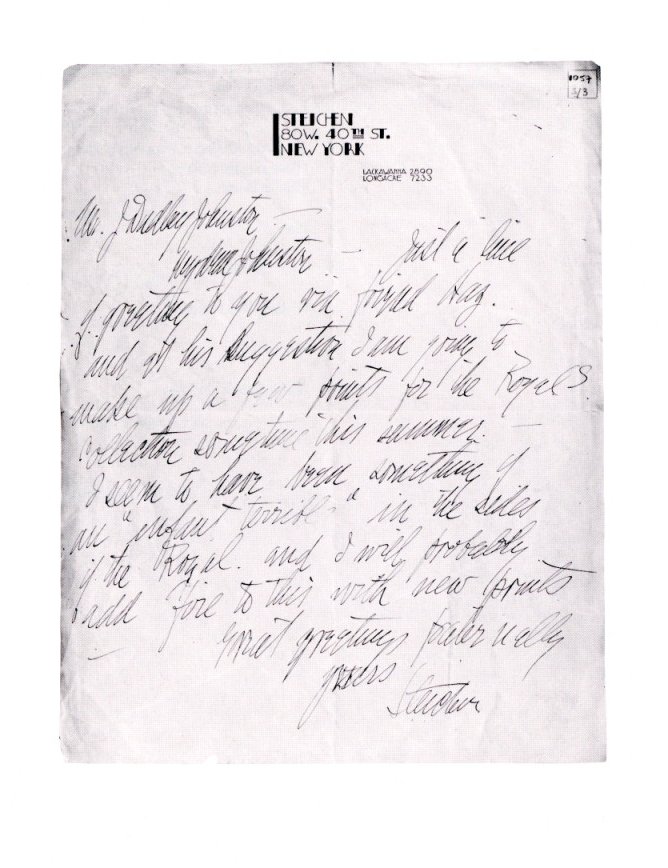 1057
3/3
STEICHEN
80 W. 40TH ST.
NEW YORK
LACKAWANNA 2890
LONGACRE 7233
Mr. J Dudley Johnston —
My dear Johnston — Just a line
of greeting to you via friend Hay.
and at his suggestion I am going to
make up a few prints for the Royal's
collection sometime this summer. —
I seem to have been something of
an "infant terrible" in the sides
of the Royal. and I will probably
add fire to this with new prints
Great greetings fraternally
yours
Steichen